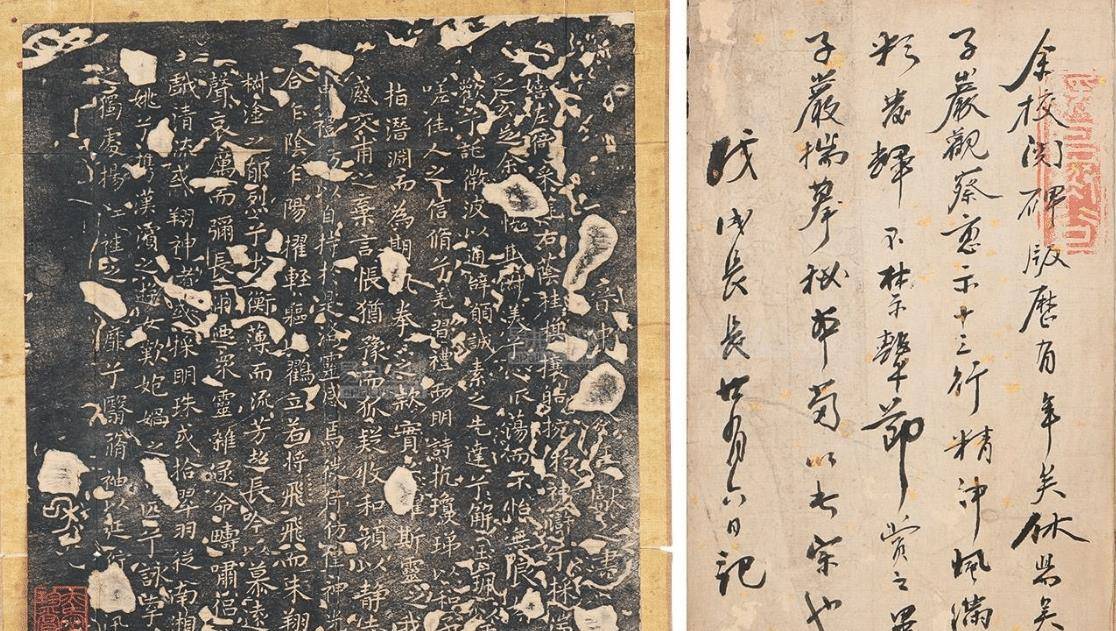 余校閱碑版歷有年矣休
子巖觀示十三行精神滿
彩發輝不禁擊節賞之
子巖揣摹秘本以此宗也
戊戌長廿六日記
嬉左倚采右蔭桂攘皓神滸兮採湍
之玄芝余其淑美兮心振蕩而不怡無良
歡兮託微波以通辭願誠素之先達兮解玉珮
嗟佳人之信脩兮羌習禮而明詩抗瓊珶以和
指潛淵而為期執拳之款實懼斯靈之我
感交甫之棄言悵猶豫而狐疑收和顏以靜志
申禮防以自持於是洛靈感焉徙倚仿佯神光
合乍陰乍陽擢輕軀以鶴立若將飛而未翔
樹塗之郁烈兮步衡薄而流芳超長吟以慕遠
聲哀厲而彌長爾迺眾靈雜遝命疇嘯侶
戲清流或翔神渚或採明珠或拾翠羽從南湘
姚兮攜漢濱之遊女歎炮媧之匹兮詠牽
獨處揚輕袿之靡兮翳脩袖以延佇